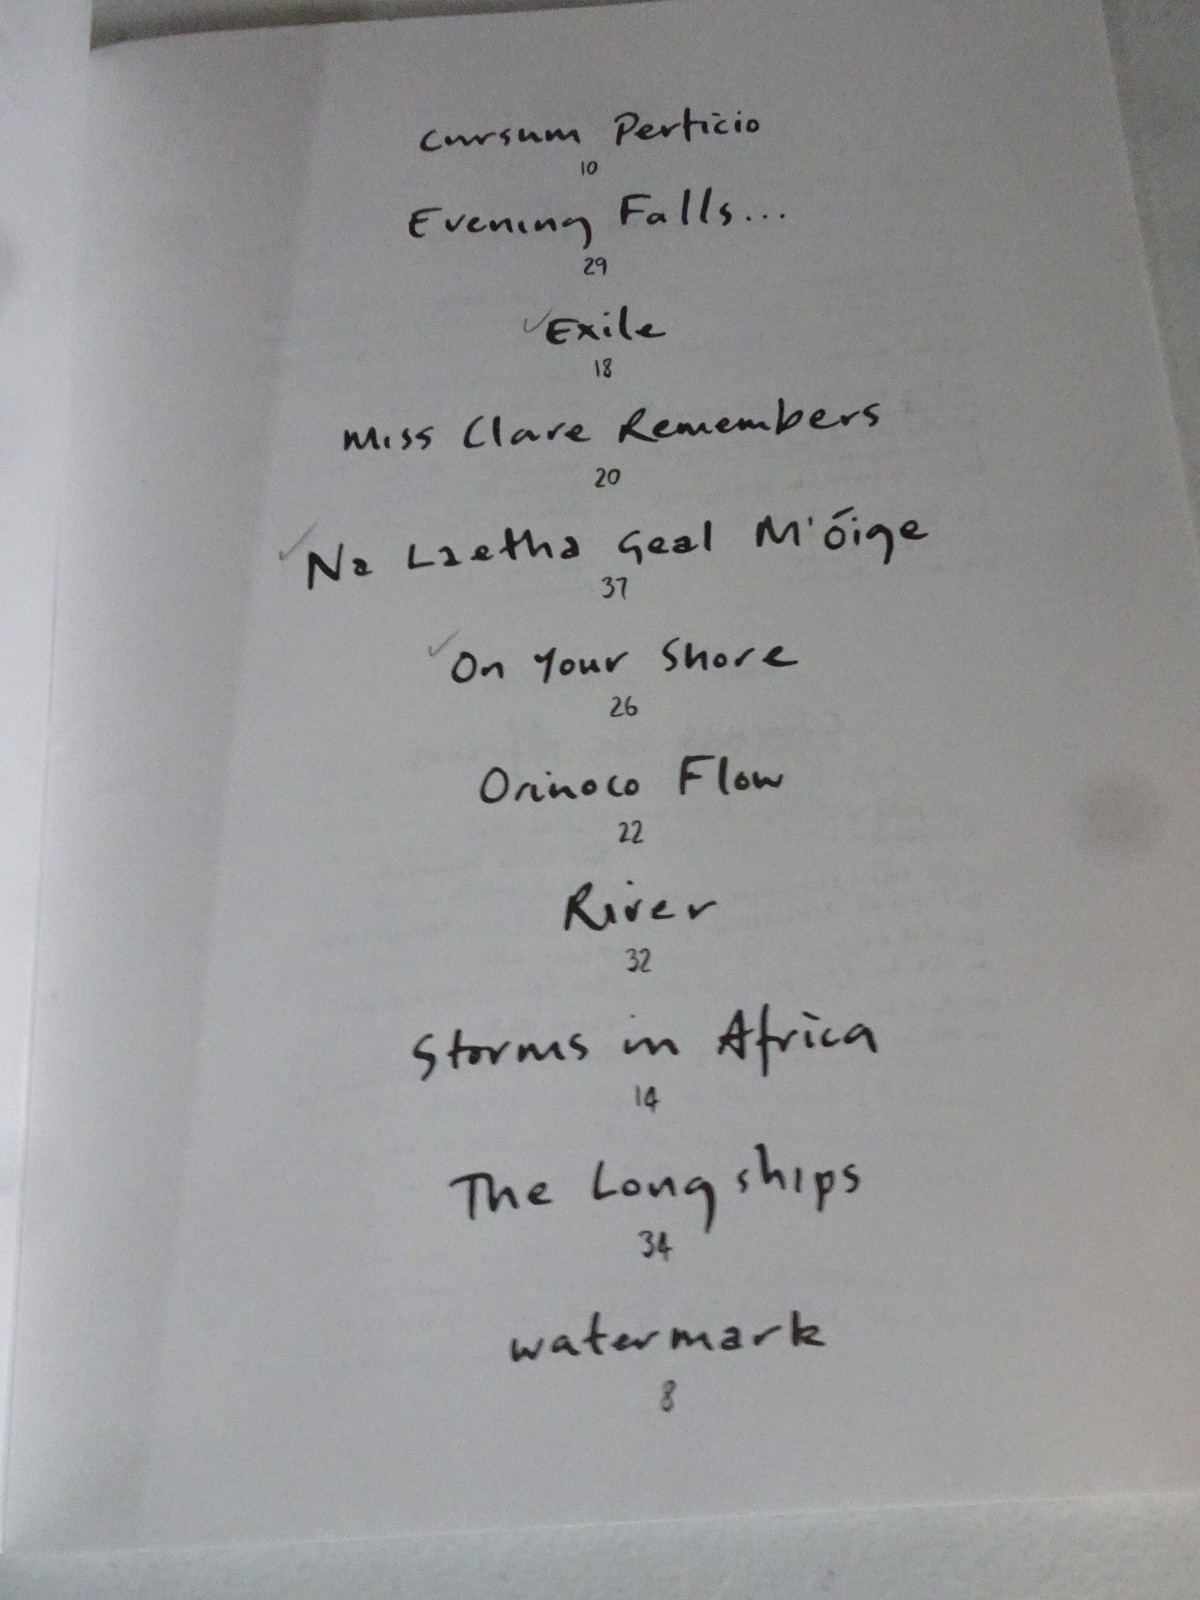 Cursum Perticio
10
Evening Falls...
29
Exile
18
Miss Clare Remembers
20
Na Laetha Geal M'óige
37
On Your Shore
26
Orinoco Flow
22
River
32
Storms in Africa
14
The Longships
34
watermark
8